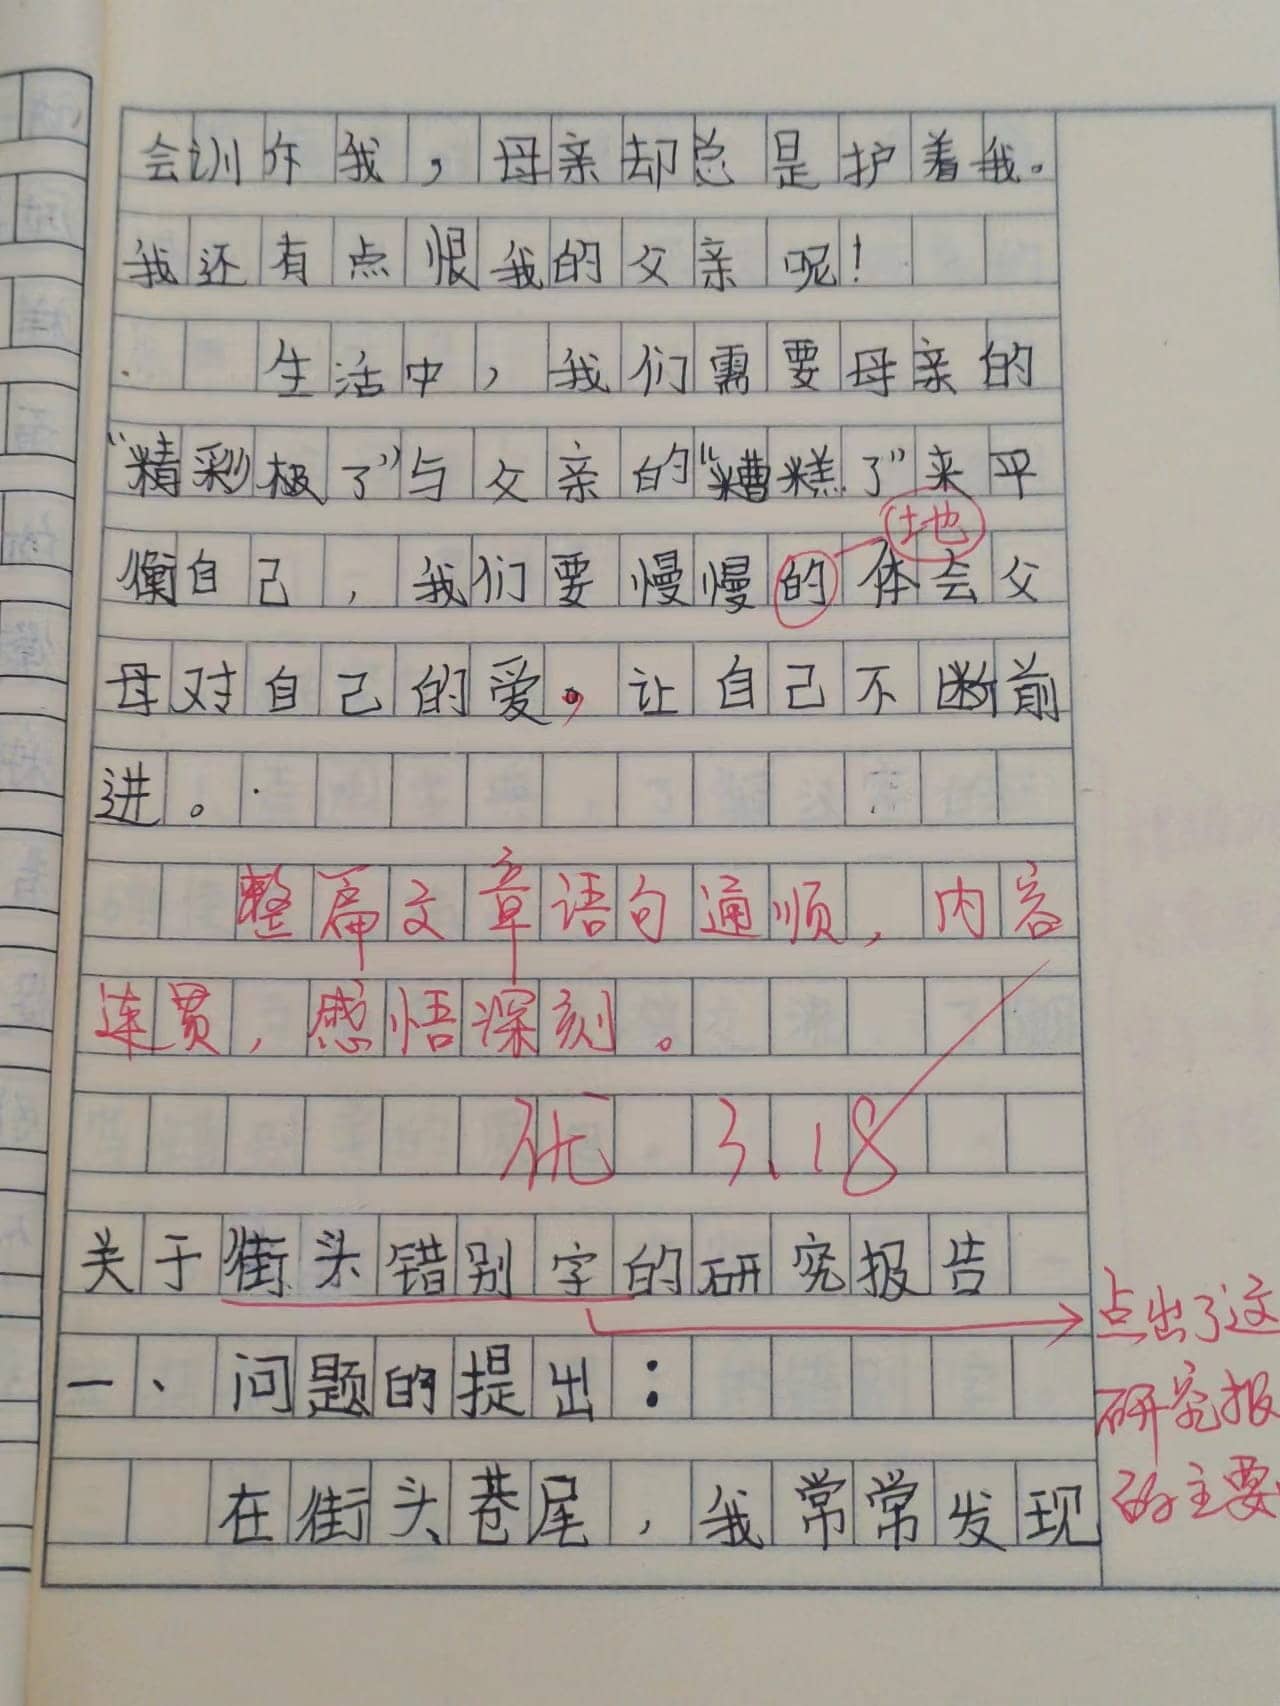 会训斥我，母亲却总是护着我。
我还有点恨我的父亲呢！
生活中，我们需要母亲的
“精彩极了”与父亲的“糟糕了”来平
地
衡自己，我们要慢慢的体会父
母对自己的爱。，让自己不断前
进。
整篇文章语句通顺，内容
连贯，感悟深刻。
优 3.18
关于街头错别字的研究报告
点出了这
一、问题的提出：
研究报
在街头巷尾，我常常发现
的主要